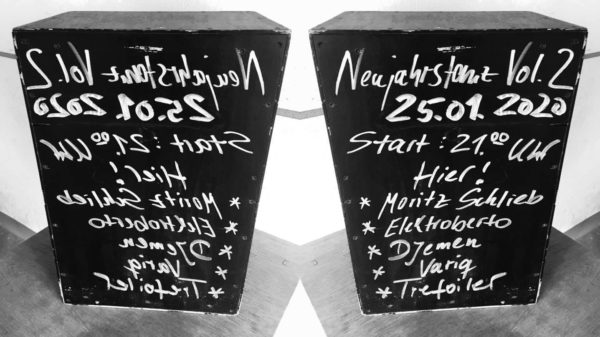 Neujahrstanz Vol. 2
25.01. 2020
Start : 21.00 Uhr
Hier!
* Moritz Schlieb
* Elektroberto
* DJemen
* Varig
* Trefoiler
Neujahrstanz Vol. 2
25.01. 2020
Start : 21.00 Uhr
Hier!
* Moritz Schlieb
* Elektroberto
* DJemen
* Varig
* Trefoiler